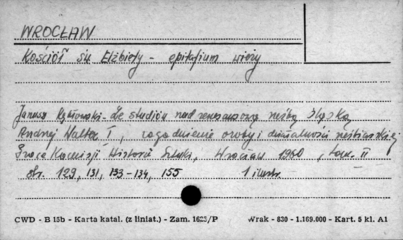 WROCŁAW
Kościół św Elżbiety - epitafium wieży
Janusz Kębłowski - Ze studiów nad renesansową rzeźbą śląską
Andrzej Walter I, zagadnienie osoby i działalności rzeźbiarskiej
Prace Komisji Historii Sztuki, Wrocław 1960, tom II
str. 129, 131, 133-134, 155 1 ilustr.
CWD - B 15b - Karta katal. (z liniat.) - Zam. 1623/P Wrak - 630 - 1.169.000 - Kart. 5 kl. A1